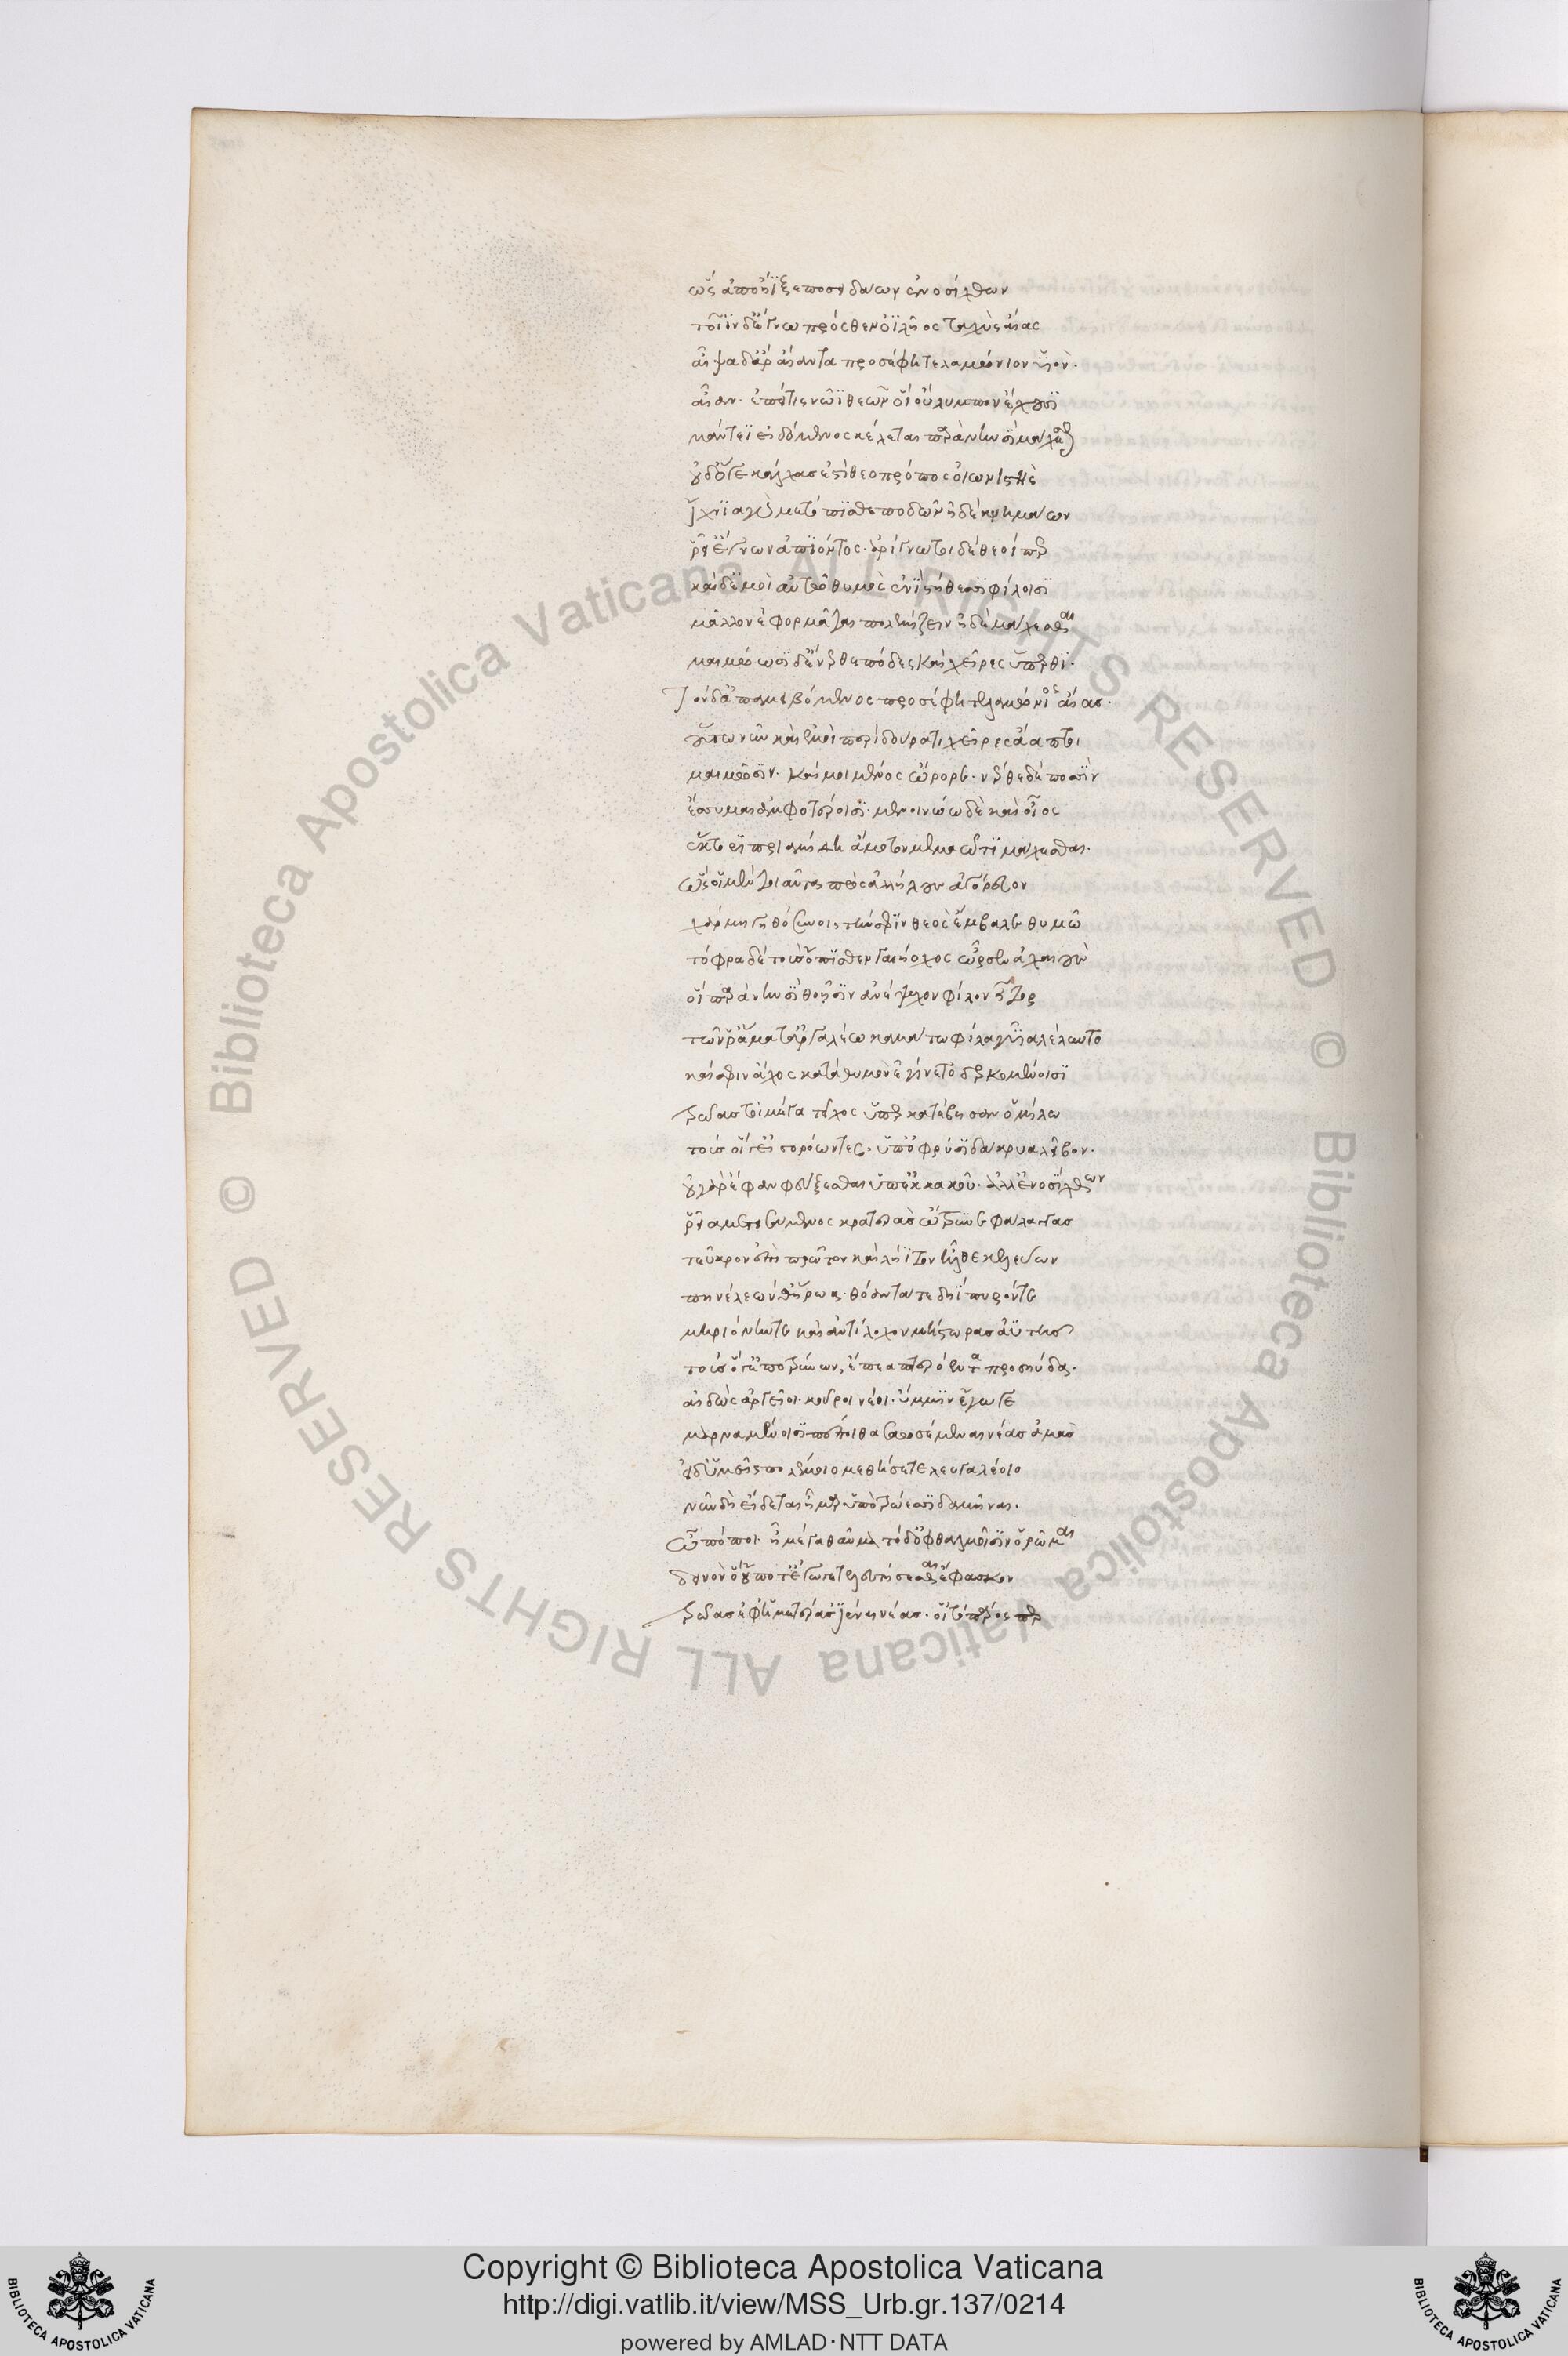 ὣς ἀπο ἤϊξε ποσειδάων ἐνοσίχθων
τοῖϊν δ' ἔγνω πρόσθεν ὀϊλῆος ταχὺς αἴας
αἶψα δ' ἄρ' αἴαντα προσέφη τελαμώνιον υἱόν·
αἶαν· ἐπεί τις νῶϊ θεῶν οἳ ὄλυμπον ἔχουσι
μάντεϊ εἰδόμενος κέλεται παρὰ νηυσὶ μάχεσθαι
οὐδ' ὅ γε κάλχας ἐστὶ θεοπρόπος οἰωνιστὴς
ἴχνια γὰρ μετόπισθε ποδῶν ἠδὲ κνημάων
ῥεῖ' ἔγνων ἀπιόντος· ἀρίγνωτοι δὲ θεοί περ
καὶ δέ μοι αὐτῷ θυμὸς ἐνὶ στήθεσσι φίλοισι
μᾶλλον ἐφορμᾶται πολεμίζειν ἠδὲ μάχεσθαι
μαιμώωσι δ' ἔνερθε πόδες καὶ χεῖρες ὕπερθε·
Τὸν δ' ἀπαμειβόμενος προσέφη τελαμώνιος αἴας·
οὕτω νῦν καὶ ἐμοὶ περὶ δούρατι χεῖρες ἄαπτοι
μαιμῶσιν· καί μοι μένος ὤρορε· νέρθε δὲ ποσσὶν
ἔσσυμαι ἀμφοτέροισι· μενοινώω δὲ καὶ οἶος
ἕκτορι πριαμίδῃ ἄμοτον μεμαῶτι μάχεσθαι·
ὣς οἱ μὲν τοιαῦτα πρὸς ἀλλήλους ἀγόρευον
χάρμῃ γηθόσυνοι, τήν σφιν θεὸς ἔμβαλε θυμῷ
τόφρα δὲ τοὺς ὄπιθεν γαιήοχος ὦρσεν ἀχαιοὺς
οἳ παρὰ νηυσὶ θοῇσιν ἀνέψυχον φίλον ἦτορ
τῶν ῥ' ἅμα τ' ἀργαλέῳ καμάτῳ φίλα γυῖα λέλυντο
καί σφιν ἄχος κατὰ θυμὸν ἐγίνετο δερκομένοισι
Τρῶας τοὶ μέγα τεῖχος ὑπερκατέβησαν ὁμίλῳ
τοὺς οἵ γ' εἰσορόωντες· ὑπ' ὀφρύσι δάκρυα λεῖβον·
οὐ γὰρ ἔφαν φεύξεσθαι ὑπὲκ κακοῦ· ἀλλ' ἐνοσίχθων
ῥεῖα μετεισάμενος κρατερὰς ὤτρυνε φάλαγγας
τεῦκρον ἐπὶ πρῶτον καὶ λήϊτον ἦλθε κελεύων
πηνέλεών θ' ἥρωα· θόαντά τε δηΐπυρόν τε
μηριόνην τε καὶ ἀντίλοχον μήστωρας ἀϋτῆς
τοὺς ὅ γ' ἐποτρύνων, ἔπεα πτερόεντα προσηύδα·
αἰδὼς ἀργεῖοι· κοῦροι νέοι· ὔμμιν ἔγωγε
μαρναμένοισι πέποιθα σαωσέμεναι νέας ἁμάς
εἰ δ' ὑμεῖς πολέμοιο μεθήσετε λευγαλέοιο
νῦν δὴ εἴδεται ἦμαρ ὑπὸ τρώεσσι δαμῆναι·
ὢ πόποι· ἦ μέγα θαῦμα τόδ' ὀφθαλμοῖσιν ὁρῶμαι
δεινὸν ὃ οὔποτ' ἔγωγε τελευτήσεσθαι ἔφασκον
Τρῶας ἐφ' ἡμετέρας ἰέναι νέας· οἳ τὸ πάρος περ